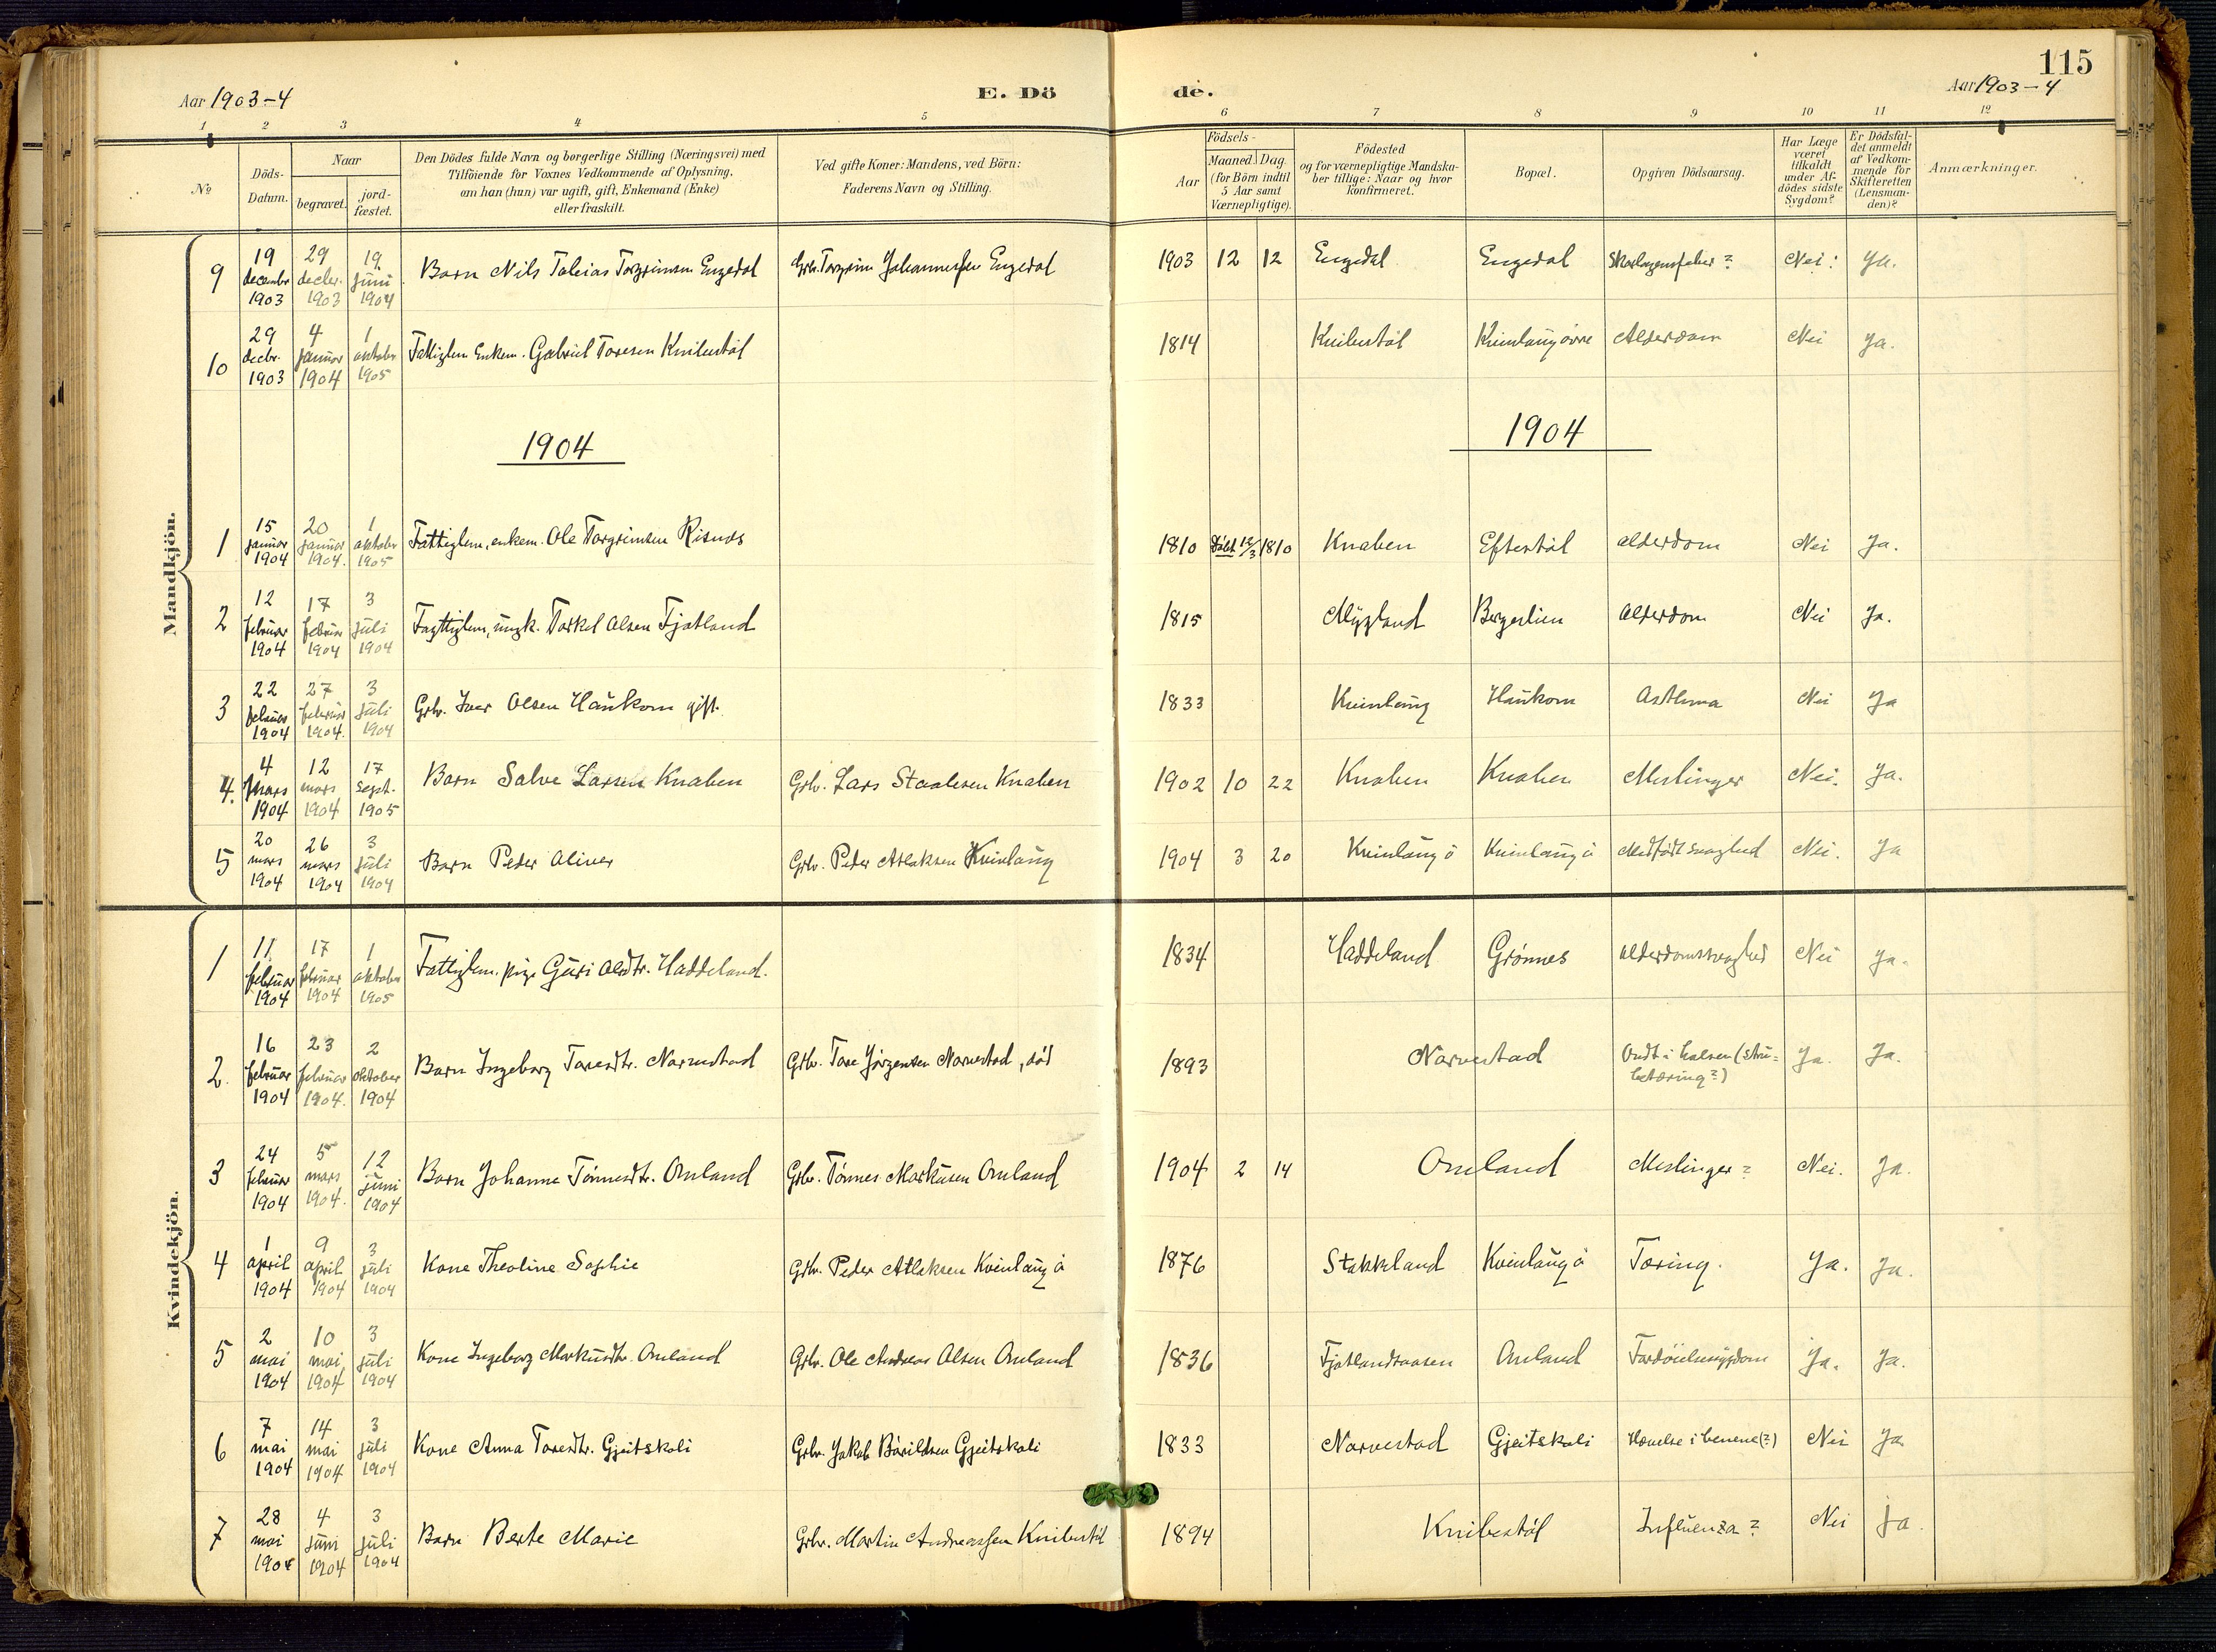 115
Aar 1903-4
E. Dö
de.
Aar 1903-4
1 2 3 4 5 6 7 8 9 10 11 12
№
Döds-
Datum.
Naar
begravet.
jord-
fæstet.
Den Dödes fulde Navn og borgerlige Stilling (Næringsvei) med
Tilföiende for Voxnes Vedkommende af Oplysning,
om han (hun) var ugift, gift, Enkemand (Enke)
eller fraskilt.
Ved gifte Koner: Mandens, ved Börn:
Faderens Navn og Stilling.
Födsels-
Aar
Maaned. Dag.
(for Börn indtil
5 Aar samt
Værnepligtige).
Födested
og for værnepligtige Mandska-
ber tillige: Naar og hvor
konfirmeret.
Bopæl.
Opgiven Dödsaarsag.
Har Læge
været
tilkaldt
under Af-
dödes sidste
Sygdom?
Er Dödsfal-
det anmeldt
af Vedkom-
mende for
Skifteretten
(Lensman-
den)?
Anmærkninger.
Mandkjön.
9 19 decembr 1903 29 decbr. 1903 19 juni 1904 Barn Nils Tobias Torgrimsen Engedal Grbr. Torgrim Johannessen Engedal 1903 12 12 Engedal Engedal Skarlagensfeber? Nei. Ja.
10 29 decbr. 1903 4 januar 1904 1 oktober 1905 Fattiglem Enkem. Gabriel Toresen Knibestøl 1814 Knibestøl Kvinlaug øvre Alderdom Nei Ja.
1904
1904
1 15 januar 1904 20 januar 1904. 1 oktober 1905 Fattiglem, enkem. Ole Torgrimsen Risnes 1810 Døbt 12/3 1810 Knaben Eftestøl alderdom Nei Ja.
2 12 februar 1904 17 februar 1904 3 juli 1904 Fattiglem, ungk. Torkel Olsen Fjotland 1815 Mygland Bergelien alderdom Nei Ja.
3 22 februar 1904 27 februar 1904. 3 juli 1904 Grbr. Iver Olsen Haukom gift. 1833 Kvinlaug Haukom Asthma Nei Ja
4. 4 mars 1904 12 mars 1904 17 sept. 1905 Barn Salve Larsen Knaben Grbr. Lars Staalesen Knaben 1902 10 22 Knaben Knaben Meslinger Nei. Ja.
5 20 mars 1904 26 mars 1904 3 juli 1904 Barn Peder Oliver Grbr. Peder Atlaksen Kvinlaug 1904 3 20 Kvinlaug ö Kvinlaug ö Medfødt svaghed Nei. Ja
Kvindekjön.
1 11 februar 1904 17 februar 1904 1 oktober 1905 Fattiglem. pige Guri Olsdtr. Haddeland. 1834 Haddeland Grönnes Alderdomssvaghed Nei Ja.
2. 16 februar 1904 23 februar 1904. 2 oktober 1904 Barn Ingeborg Toresdtr. Narvestad Grbr. Tore Jörgensen Narvestad, död 1893 Narvestad Ondt i halsen (stru-
betæring?) Ja. Ja.
3 24 februar 1904 5 mars 1904. 12 juni 1904 Barn Johanne Tönnesdtr. Omland Grbr. Tönnes Markusen Omland 1904 2 14 Omland Meslinger? Nei. Ja.
4 1 april 1904 9 april 1904 3 juli 1904 Kone Theoline Sophie Grbr. Peder Atlaksen Kvinlaug ö 1876 Stakkland Kvinlaug ö Tæring. Ja. Ja.
5 2 mai 1904 10 mai 1904 3 juli 1904 Kone Ingeborg Markusdtr. Omland Grbr. Ole Andreas Olsen Omland 1836 Fjotlandsaasen Omland Fordöielsessygdom Ja. Ja.
6 7 mai 1904 14 mai 1904 3 juli 1904 Kone Anna Toresdtr. Gjeitskoli Grbr. Jakob Börildsen Gjeitskoli 1833 Narvestad Gjeitskoli Hævelse i benene(?) Nei Ja
7 28 mai 1904 4 juni 1904 3 juli 1904 Barn Berte Marie Grbr. Martin Andreassen Knibestöl 1894 Knibestöl Influenza? Nei Ja.